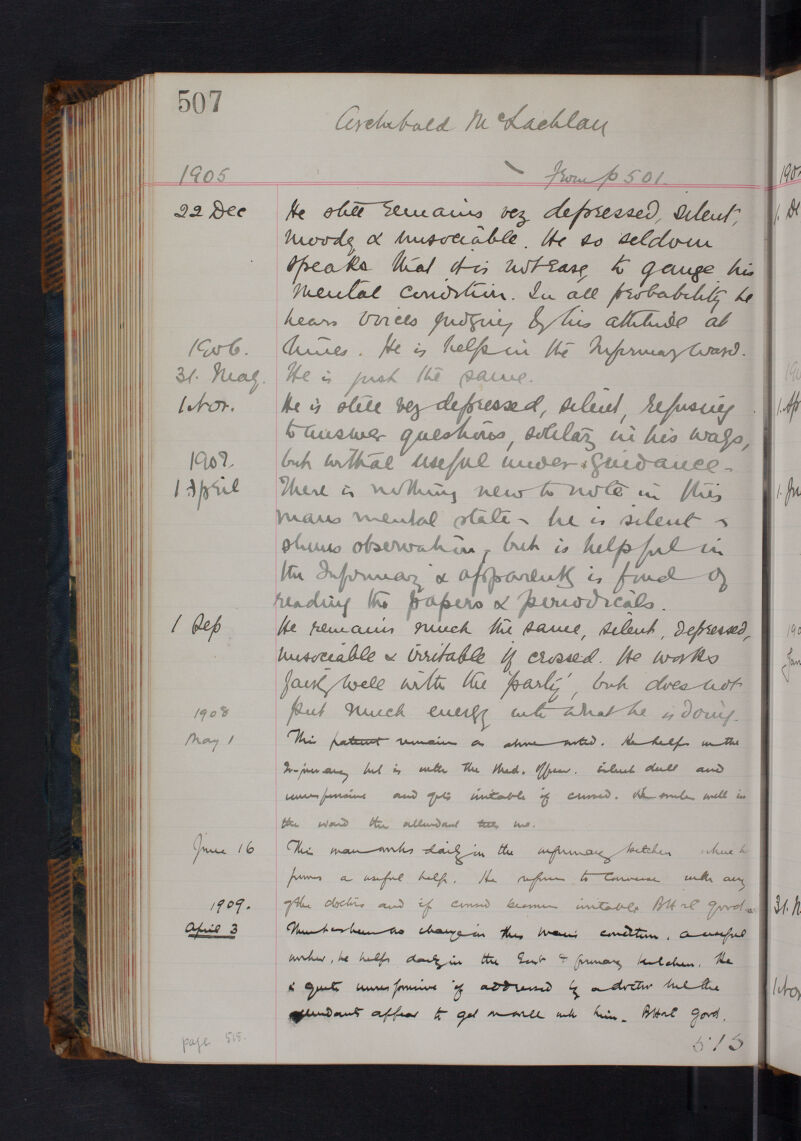 507
Archibald McLachlan
1905 from p 501.
22 Dec He still remains very depressed, silent,
moody & unsociable. He so seldom
speaks that it is not easy to gauge his
mental condition. In all probability he
hears voices judging by his attitude at
1906. times. He is help in the Infirmary Ward.
31. May. He is just the same.
1 Nov. He is still very depressed, silent, refusing
to answer questions, solitary in his ways,
1907. but withal useful under guidance.
1 April There is nothing new to note in this
mans mental state - he is silent &
shuns observation, but is helpful in
the Infirmary & apparently is fond of
reading the papers & periodicals.
1 Sep He remains much the same, silent, depressed,
unsociable & irritable if crossed. He works
fairly well with the 'party', but does not
1908 put much energy into what he is doing.
May 1 This patient remains as above noted. He helps in the
Infirmary but is with the Med. Officer silent dull and
unresponsive and gets irritable if crossed. He works well in
the ward the attendant me.
June 16 This man works daily in the infirmary kitchen where he
proves a useful help. He refuses to converse with any
1909. of the doctors and if crossed becomes irritable. BHsl good
April 3 There has been no change in this mans condition. a useful
worker, he helps daily in the kitchen. He
is quite unresponsive if addressed by a doctor but the
attendants appear to get on well with him. BHsl good.
page 515. 515